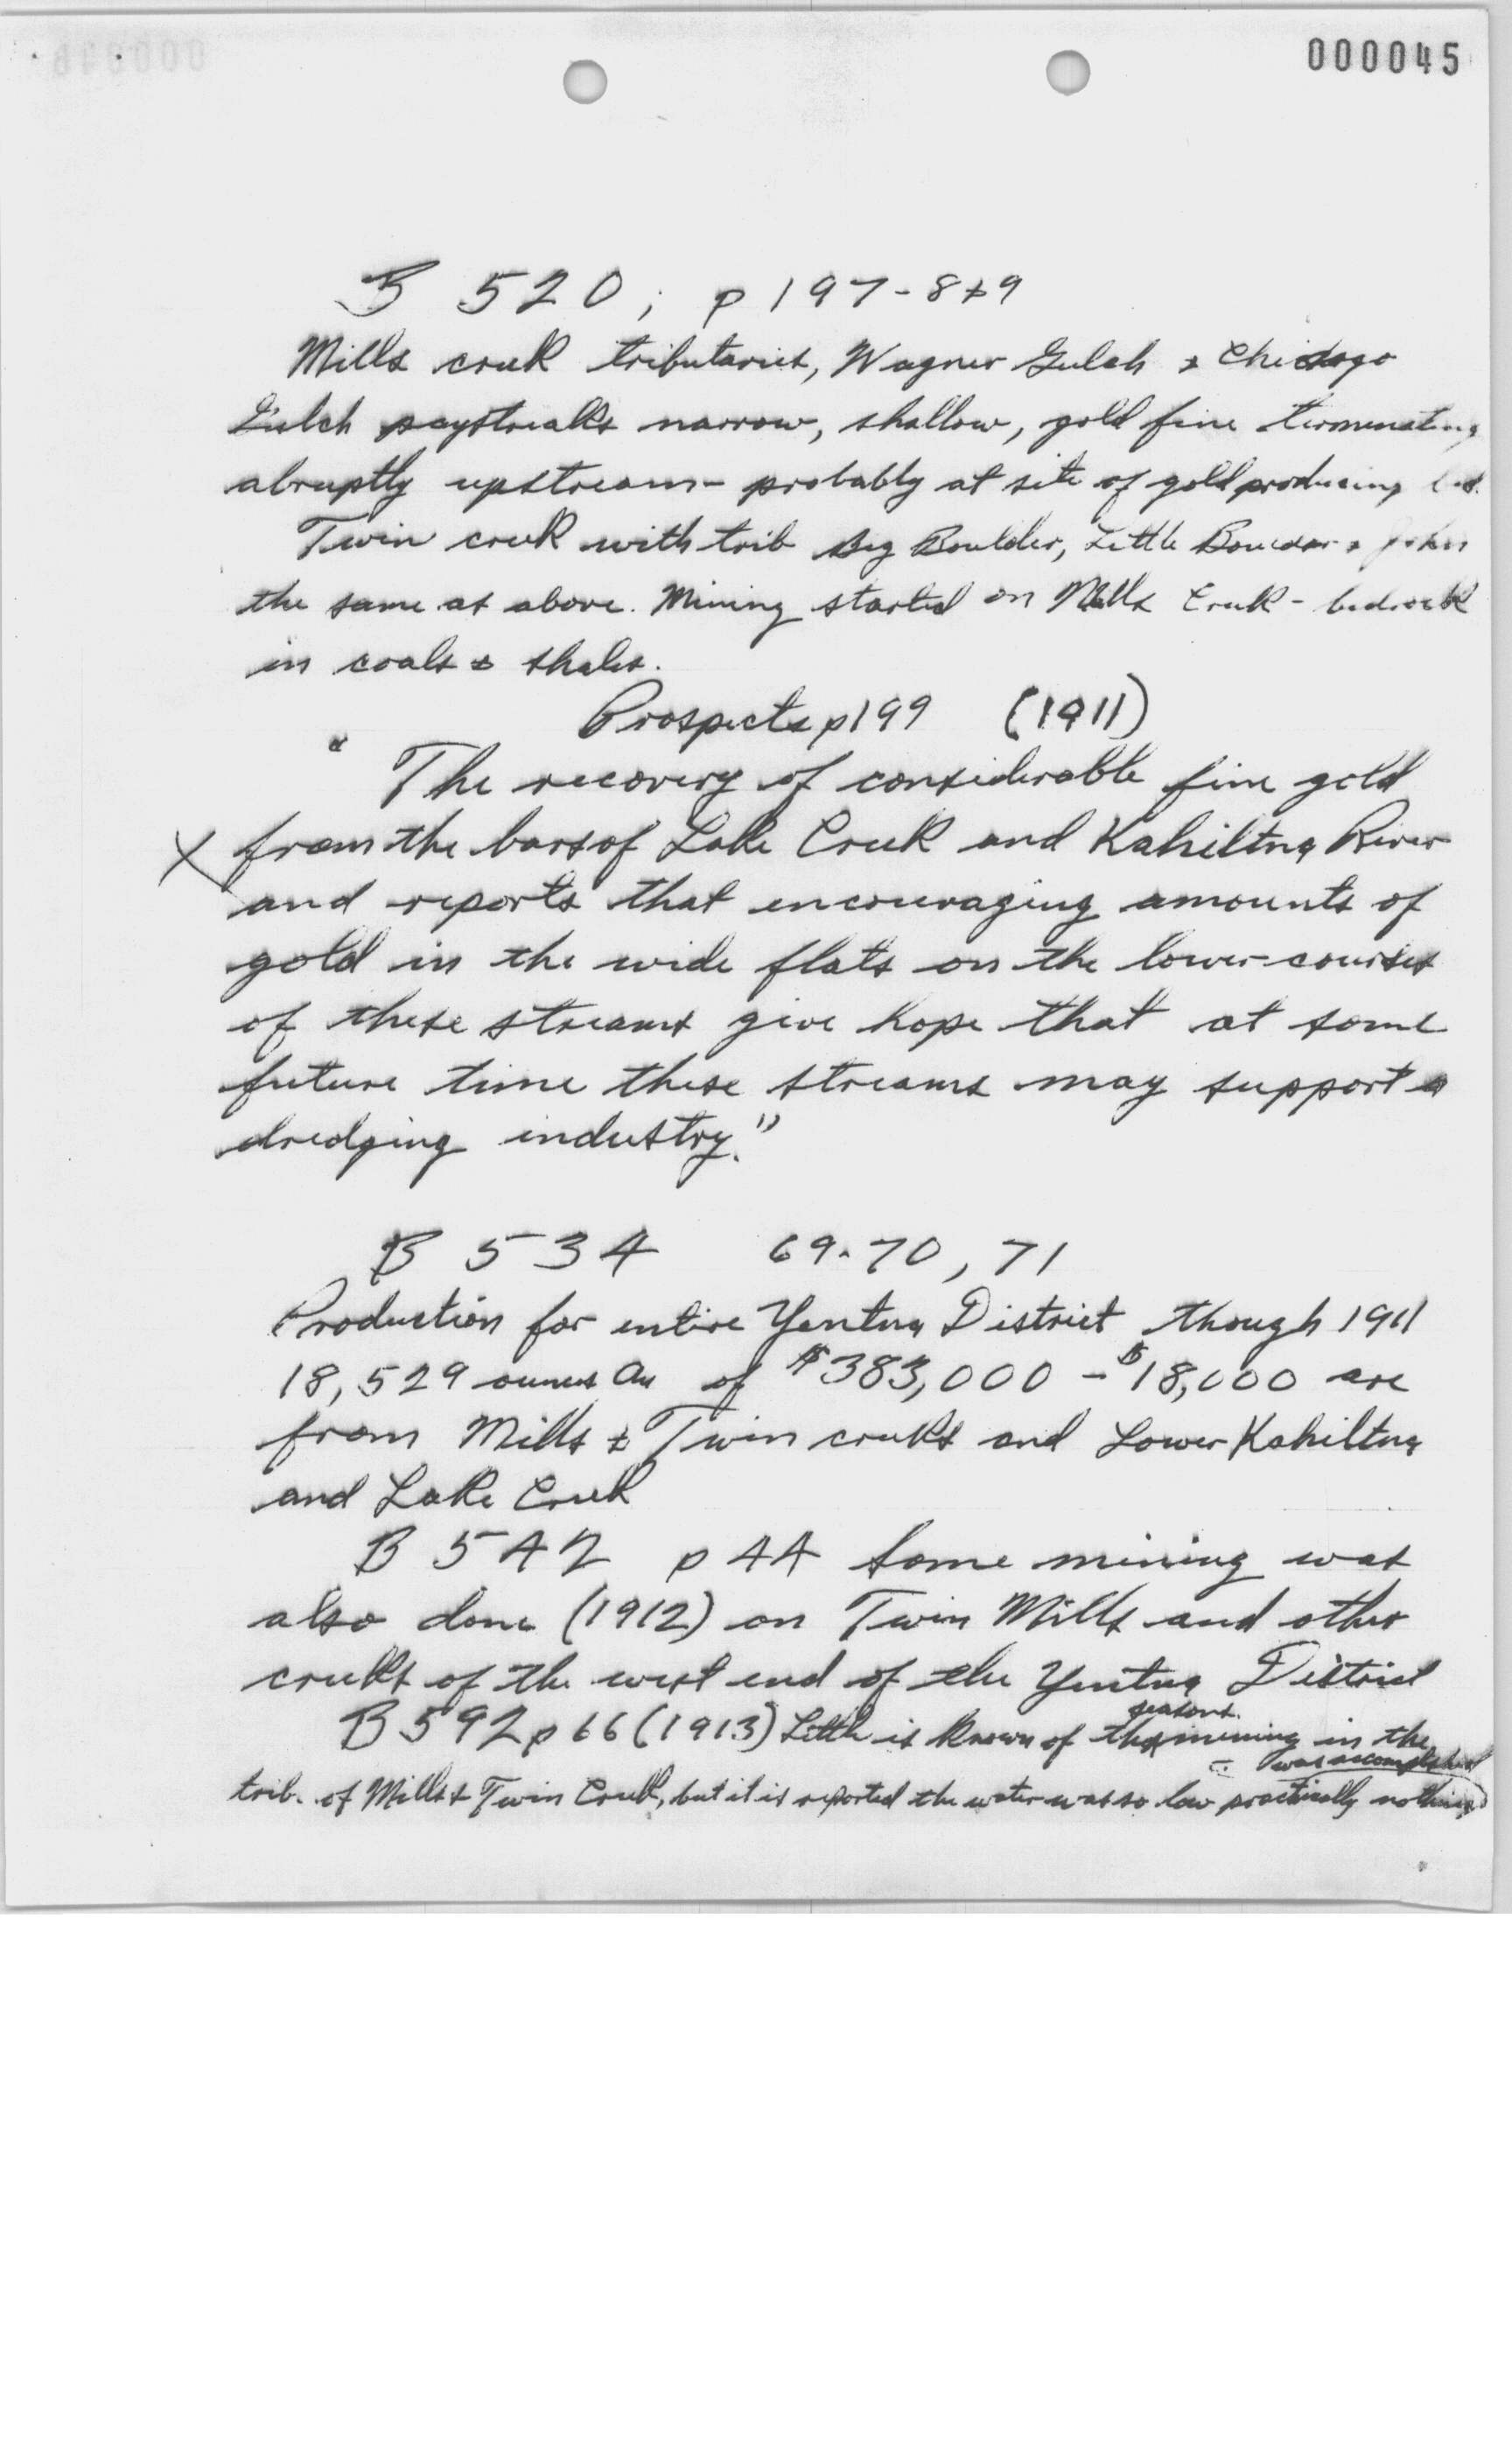 000045
B 520, p 197-8+9
Mills creek tributaries, Wagner Gulch & Chicago
Gulch paystreaks narrow, shallow, gold fine terminating
abruptly upstream - probably at site of gold producing
Twin creek with trib Big Boulder, Little Boulder &
the same as above. Mining started on Mills Creek - bedrock
in coals & shales.
Prospects p199 (1911)
" The recovery of considerable fine gold
X from the bars of Lake Creek and Kahiltna River
and reports that encouraging amounts of
gold in the wide flats on the lower courses
of these streams give hope that at some
future time these streams may support a
dredging industry."
B 534 69-70, 71
Production for entire Yentna District though 1911
18,529 ounces Au of $383,000 - $18,000 are
from Mills & Twin creeks and Lower Kahiltna
and Lake Creek
B 542 p 44 Some mining was
also done (1912) on Twin Mills and other
creeks of the west end of the Yentna District
seasons.
B 592 p 66 (1913) Little is known of the mining in the
was accomplished
trib. of Mills & Twin Creek, but it is reported the water was so low practically nothing